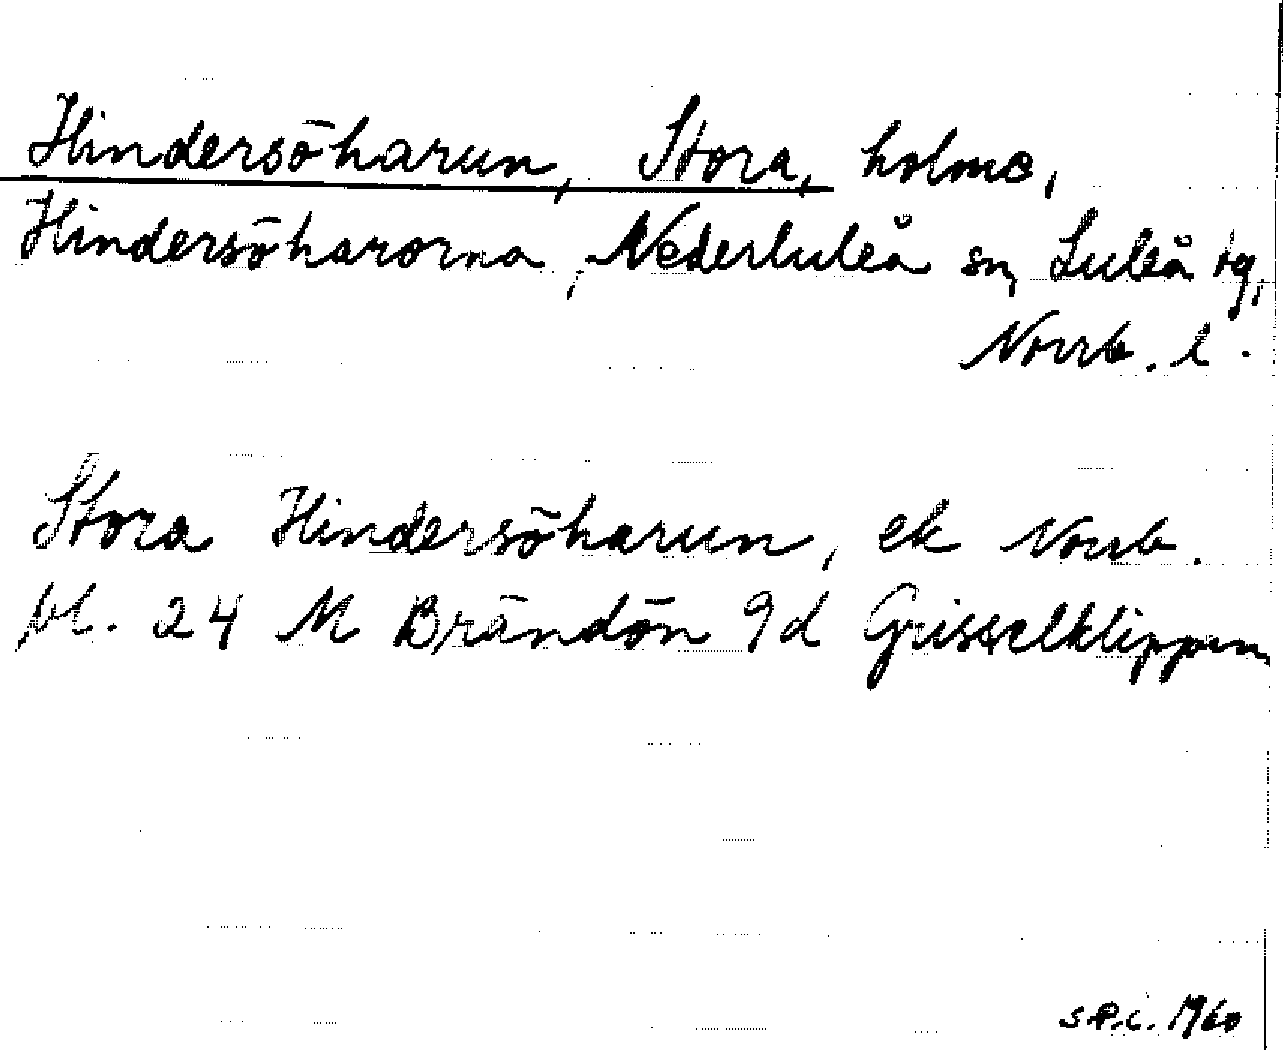 Hindersöharun, Stora, holme,
Hindersöharorna, Nederluleå sn, Luleå tg,
Norrb. l.
Stora Hindersöharun, ek Norrb.
bl. 24 M Brändön 9d Grisselklippen
s.P.i. 1960